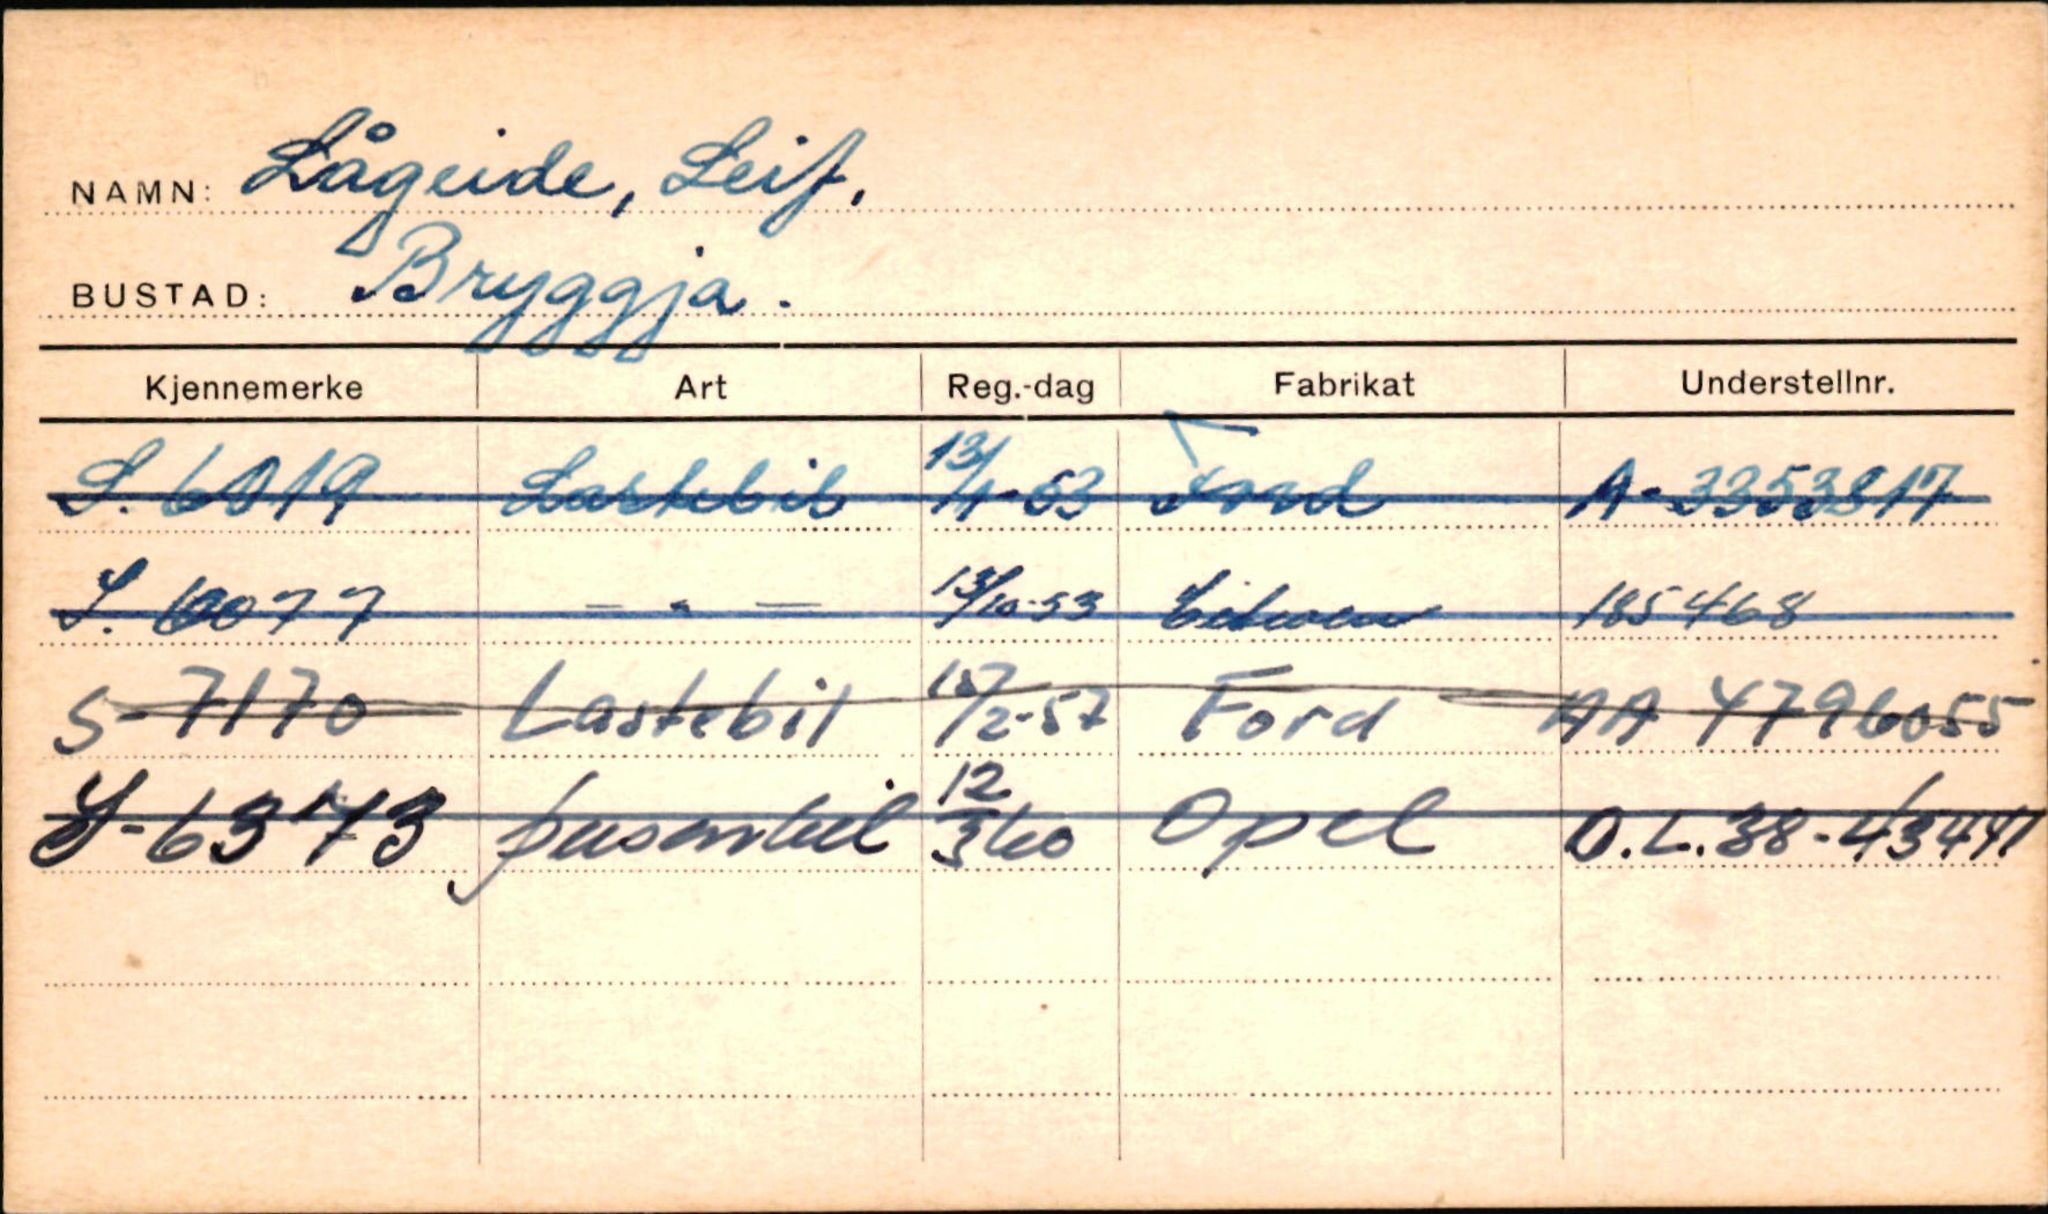 NAMN: Lågeide, Leif.
BUSTAD: Bryggja.
Kjennemerke Art Reg.-dag Fabrikat Understellnr.
S. 6019 Lastebil 13/4-53 Ford A-3353817
S. 6077 — " — 13/10-53 185468
S-7170 Lastebil 15/2-57 Ford AA 4796055
S-6373 personbil 12/3 60 Opel O.L.38-43441